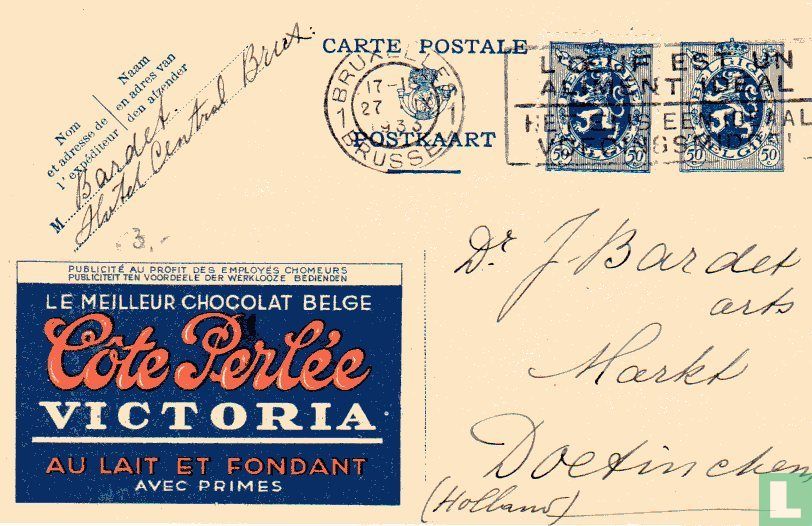 CARTE POSTALE
POSTKAART
BRUXELLES
17-
27 1933
1 1
BRUSSEL
L'ŒUF EST UN
ALIMENT IDEAL
HET EI IS EEN IDEAAL
VOEDINGSMIDDEL
BELGIQUE BELGIQUE
BELGIË BELGIË
50 50 50 50
Nom
et adresse de
l'expéditeur
Naam
en adres van
den afzender
M Bardet.
Hotel Central Brux.
3,-
PUBLICITÉ AU PROFIT DES EMPLOYÉS CHOMEURS
PUBLICITEIT TEN VOORDEELE DER WERKLOOZE BEDIENDEN
LE MEILLEUR CHOCOLAT BELGE
Côte Perlée
VICTORIA
AU LAIT ET FONDANT
AVEC PRIMES
Dr J. Bardet
arts
Markt
Doetinchem
(Holland)
L